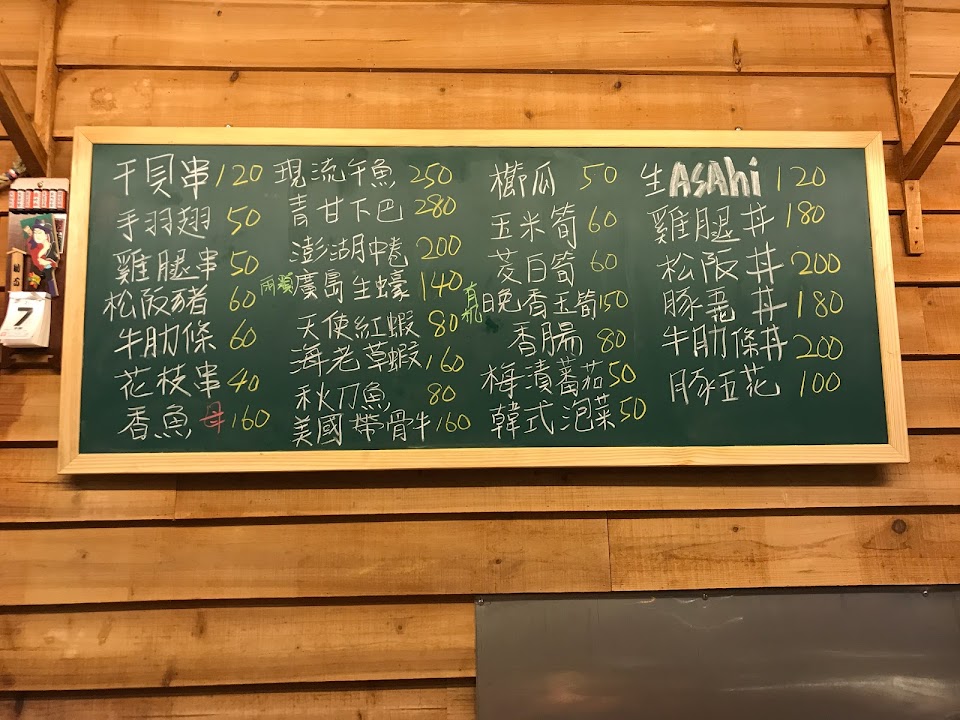 干貝串120
手羽翅50
雞腿串50
松阪豬60
牛肋條60
花枝串40
香魚母160
現流午魚250
青甘下巴280
澎湖中卷200
兩顆廣島生蠔140
天使紅蝦80
海老草蝦160
秋刀魚80
美國帶骨牛160
櫛瓜50
玉米筍60
茭白筍60
真晚香玉筍150
香腸80
梅漬蕃茄50
韓式泡菜50
生ASAhi120
雞腿丼180
松阪丼200
豚丼180
牛肋條丼200
豚五花100
7